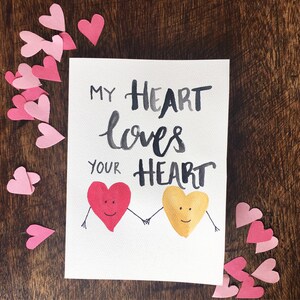 MY HEART
loves
YOUR HEART